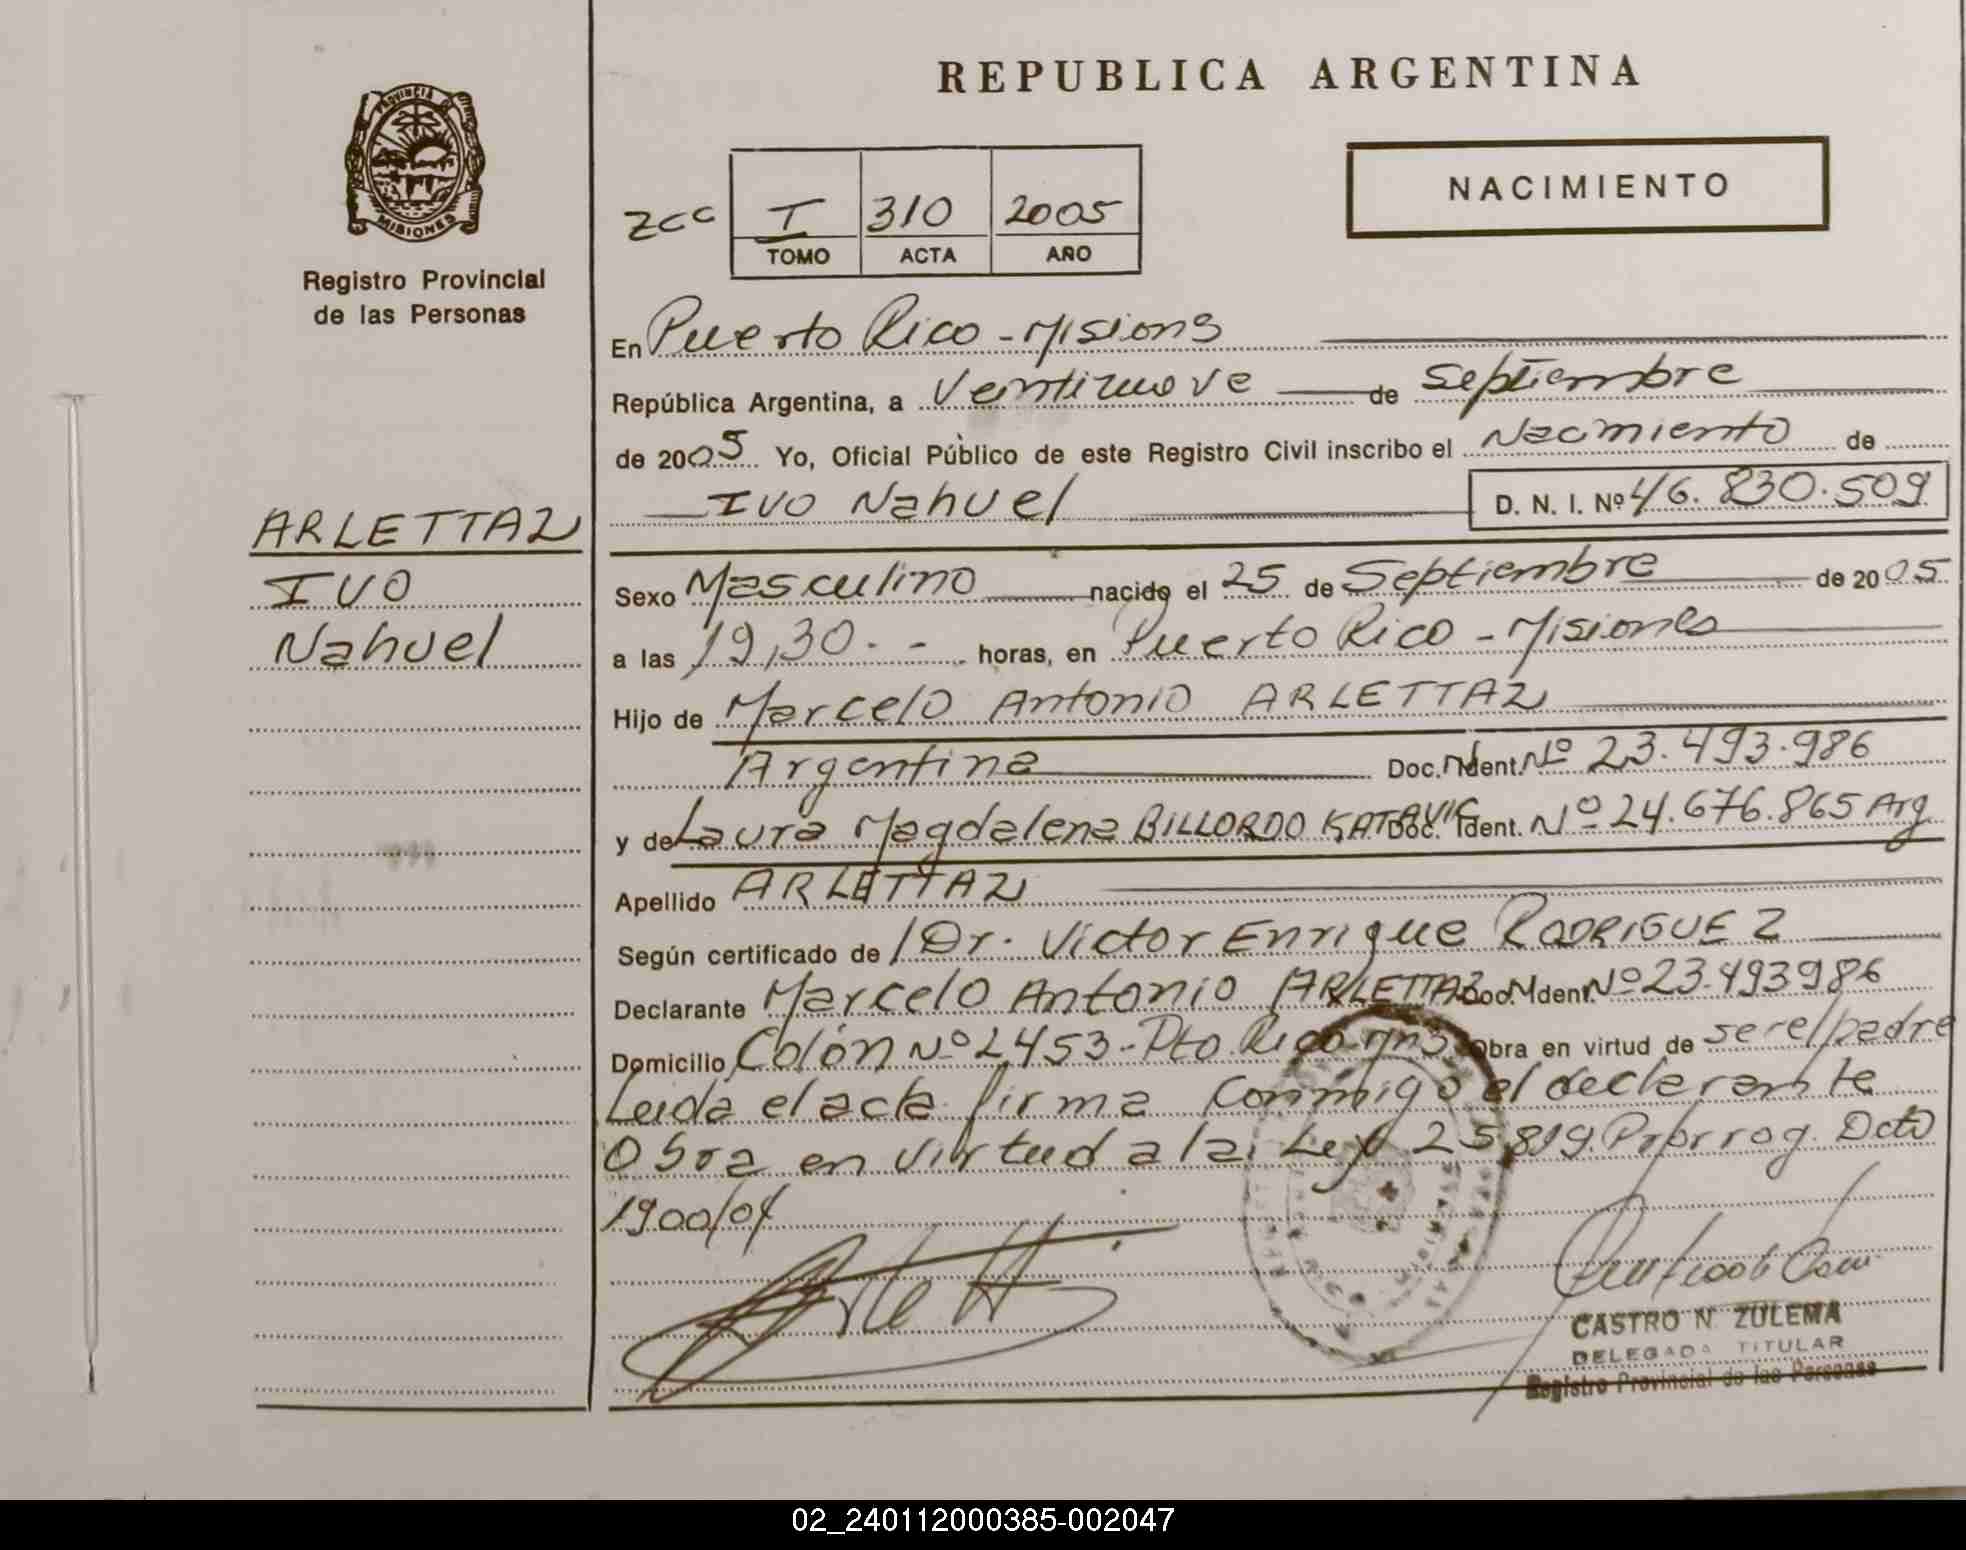 REPUBLICA ARGENTINA
PROVINCIA DE
MISIONES
Registro Provincial
de las Personas
NACIMIENTO
ZCC I 310 2005
TOMO ACTA AÑO
En Puerto Rico - Misions
República Argentina, a Veintinueve de Septiembre
de 2005 Yo, Oficial Público de este Registro Civil inscribo el Nacimiento de
Ivo Nahuel D. N. I. Nº 46.830.509
ARLETTAZ
IVO
Nahuel
Sexo Masculino nacido el 25 de Septiembre de 2005
a las 19,30.- horas, en Puerto Rico - Misiones
Hijo de Marcelo Antonio ARLETTAZ
Argentina Doc. Ident. Nº 23.493.986
y de Laura Magdalena BILLORDO KATAVIC Doc. Ident. Nº 24.676.865 Arg.
Apellido ARLETTAZ
Según certificado de Dr. Victor Enrique RODRIGUEZ
Declarante Marcelo Antonio ARLETTAZ Doc. Ident. Nº 23.493986
Domicilio Colón Nº 2453 - Pto. Rico Mns Obra en virtud de ser el padre
Leida el acta firma conmigo el declarante
Obra en virtud a la Ley 25.819. Prorrog. Dcto
1900/04
CASTRO N. ZULEMA
DELEGADA TITULAR
Registro Provincial de las Personas
02_240112000385-002047